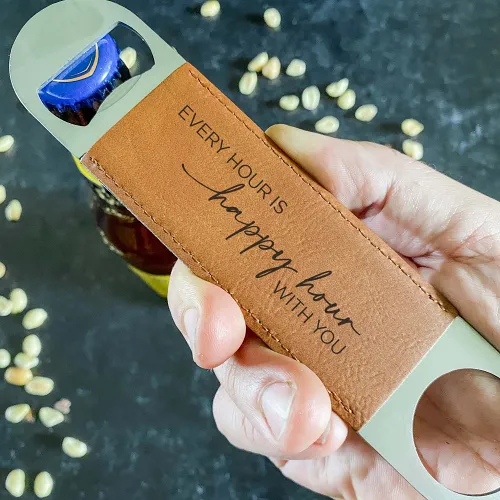 EVERY HOUR IS
happy hour
WITH YOU